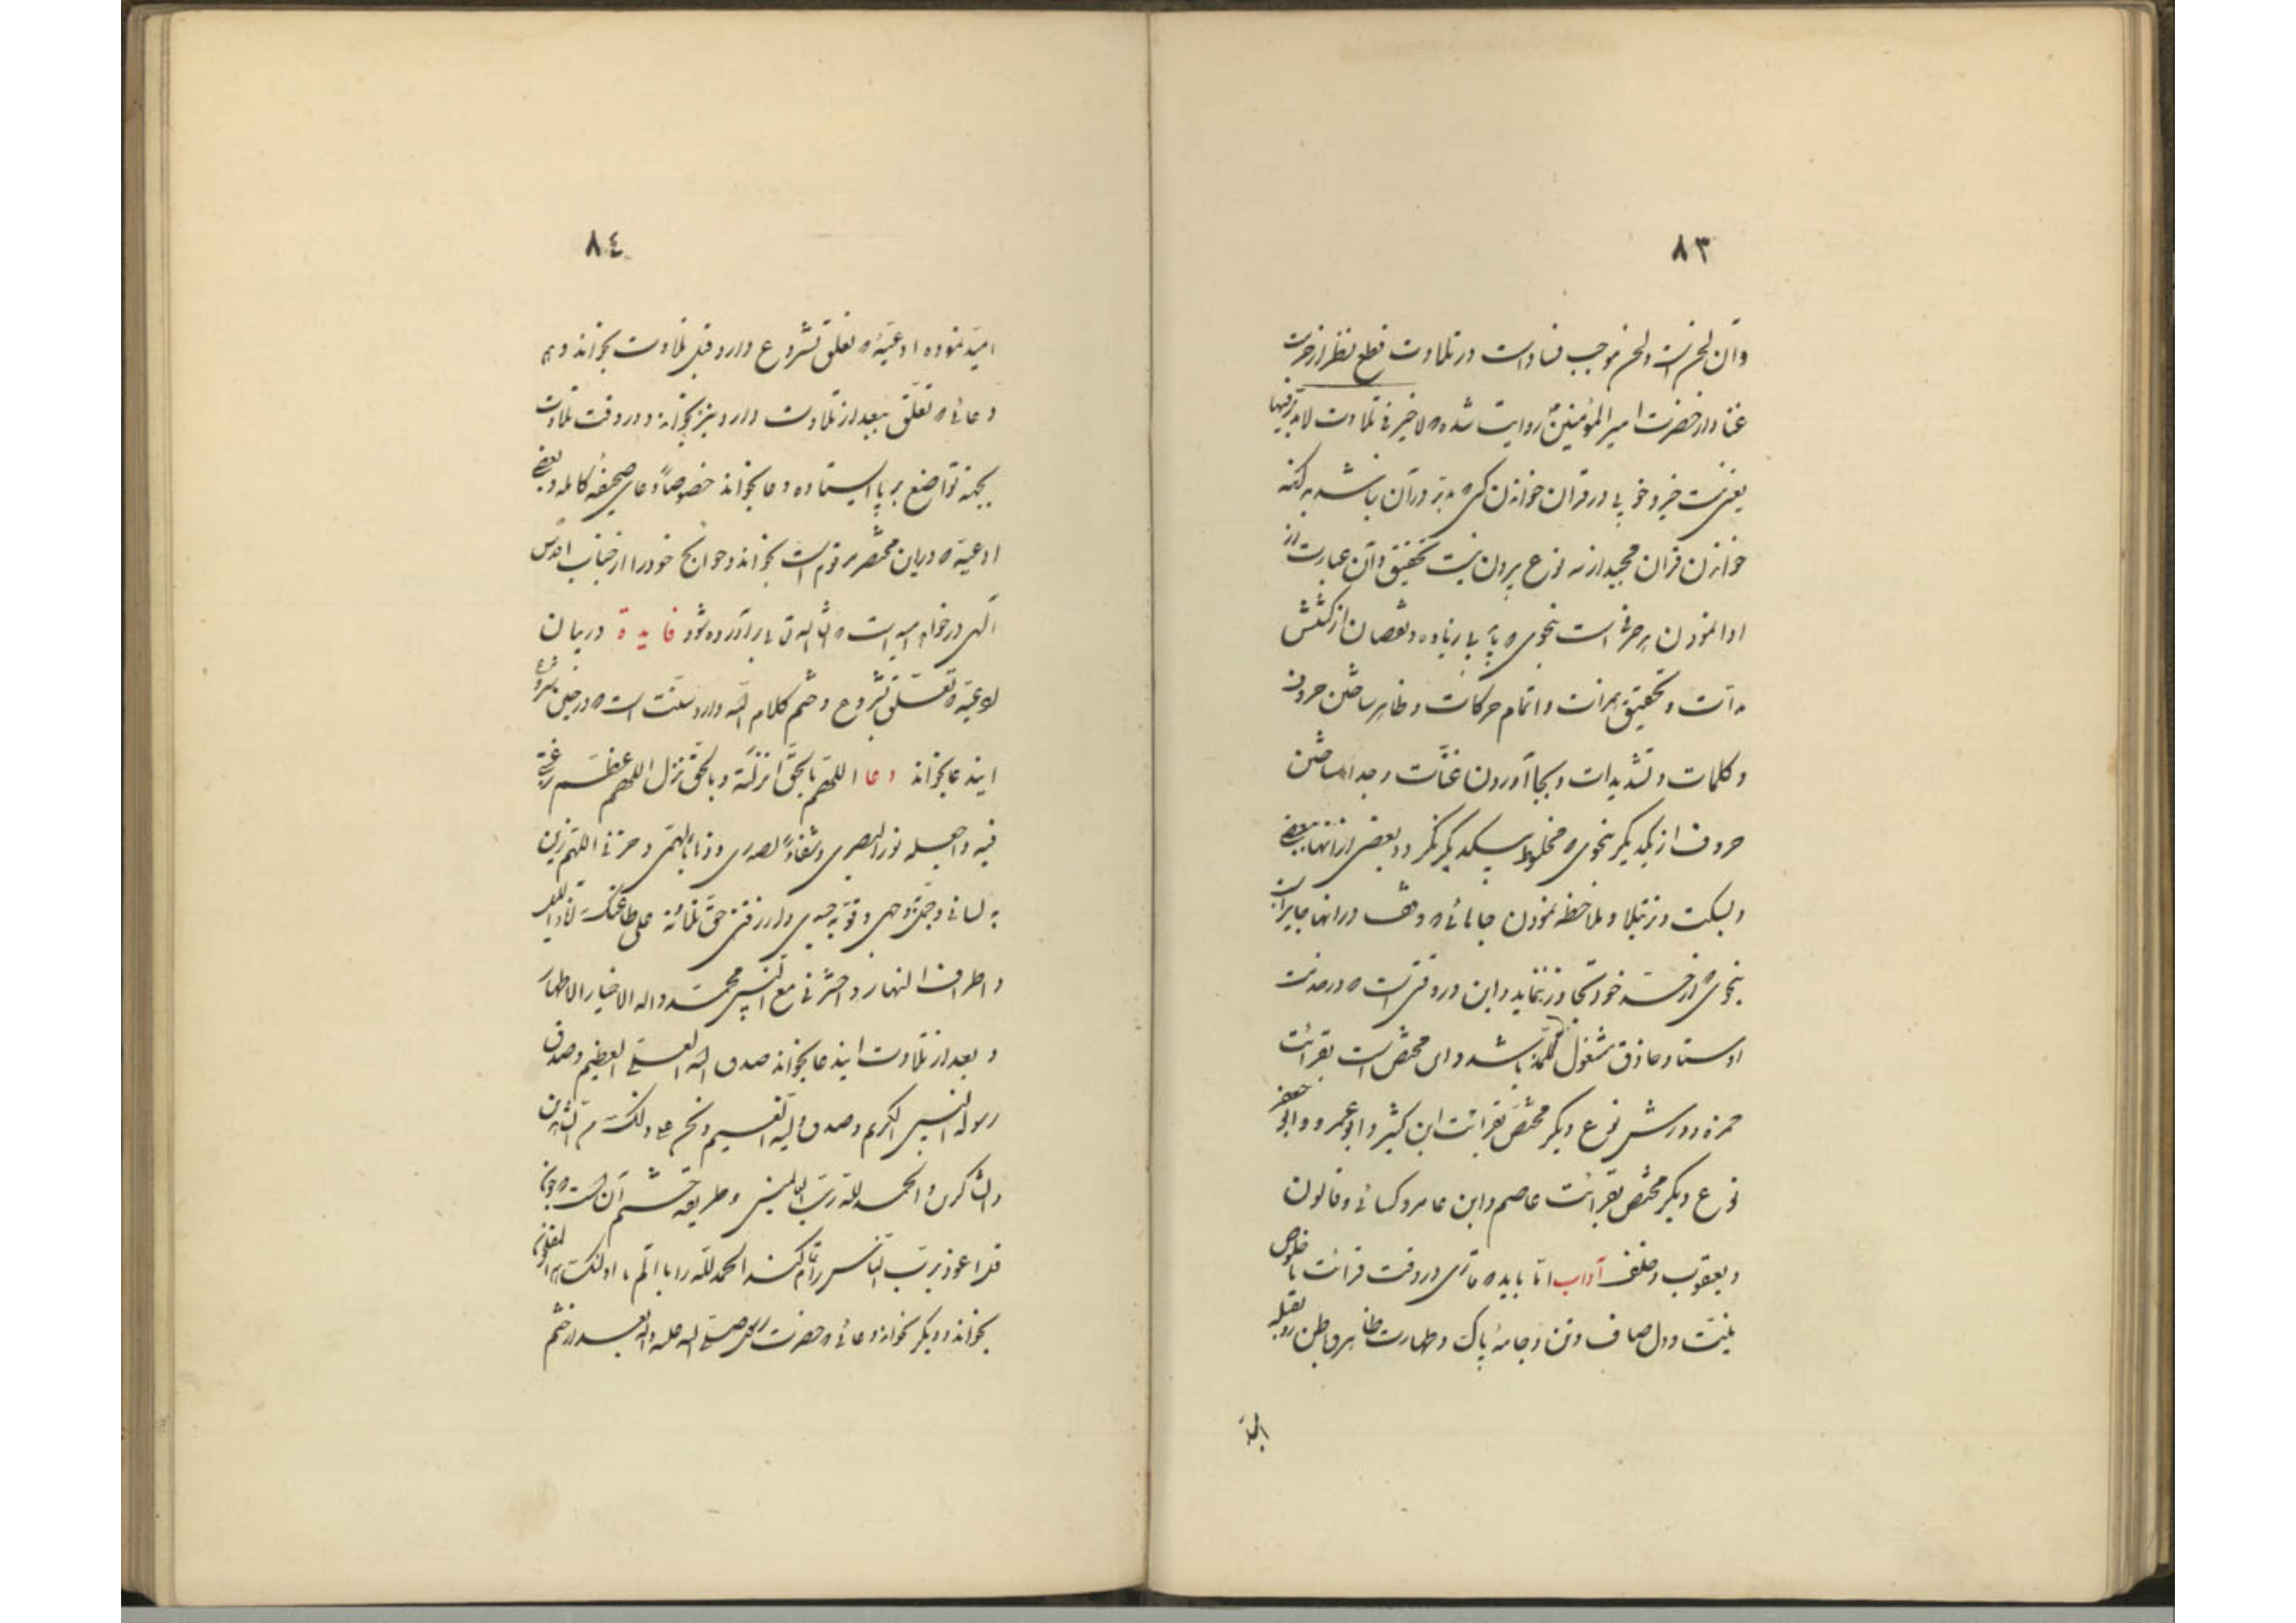 ٨٣
وآن لحن است ولحن موجب فساد است در تلاوت قطع نظر از حرمت
غنا واز حضرت امیر المؤمنین روایت شده که لا خیر فی تلاوت لا تدبر فیها
یعنی نیست خیر و خوبی در قران خواندن که تدبر در آن نباشد
خواندن قران مجید از سه نوع بیرون نیست تحقیق وآن عبارت از
ادا نمودن هر حرفی است بنحوی که باید بی زیاده ونقصان از کشش
مدات و تحقیق همزات و اتمام حرکات و ظاهر ساختن حروف
و کلمات و تشدیدات و بجا آوردن غنات و جدا ساختن
حروف از یکدیگر بنحوی که مخلوط بیکدیگر نگردد بعضی از آنها ببعضی
و بسکت و ترتیلا و ملاحظه نمودن جاهائی که وقف در انها جایز است
بنحوی که از حد خود تجاوز ننماید و این در وقتی است که در خدمت
اوستاد حاذق مشغول تلمذ باشد و این مختص است بقرائت
حمزه و ورش نوع دیگر مختص بقرائت ابن کثیر و ابو عمرو و ابو جعفر
نوع دیگر مختص بقرائت عاصم و ابن عامر و کسائی و قالون
و یعقوب و خلف آداب امّا باید که قاری در وقت قرائت با خلوص
نیّت و دل صاف و تن و جامهٔ پاک و طهارت ظاهر و باطن رو بقبله
٨٤
امید نموده ادعیهٔ که تعلق بشروع دارد قبل تلاوت بخواند و هم
دعائی که تعلّق ببعد از تلاوت دارد نیز بخواند و در وقت تلاوت
بجهة تواضع بر پا ایستاده دعا بخواند خصوصاً دعای صحیفهٔ کامله و بعضی
ادعیه که در این مختصر مرقوم است بخواند و حوائج خود را از جناب اقدس
آلهی در خواهد امید است که ان شاء الله تعالی برآورده شود فایدة در بیان
ادعیه که تعلّق بشروع و ختم کلام الله دارد سنّت است که در حین شروع
ایندعا بخواند دعا اللهم بالحقّ انزلته و بالحقّ نزل اللهم عظّم رغبتی
فیه واجعله نوراً لبصری وشفاءً لصدری وذهاباً لهمّی وحزنی اللهم زین
به لسانی وجمّل به وجهی وقوّ به جسدی وارزقنی حقّ تلاوته علی طاعتک آناء اللیل
واطراف النهار واحشرنی مع النبی محمّد واله الاخیار الاطهار
و بعد از تلاوت ایندعا بخواند صدق الله العلی العظیم وصدق
رسوله النبی الکریم وصدق ولیه ونحن علی ذلک من الشاهدین
والشاکرین والحمد لله ربّ العالمین و طریقه ختم آن است که چون
قل اعوذ بربّ النّاس را تمام کند الحمد لله را با الم تا اولئک هم المفلحون
بخواند و دیگر بخواند دعائی که حضرت رسول صلی الله علیه وآله بعد از ختم